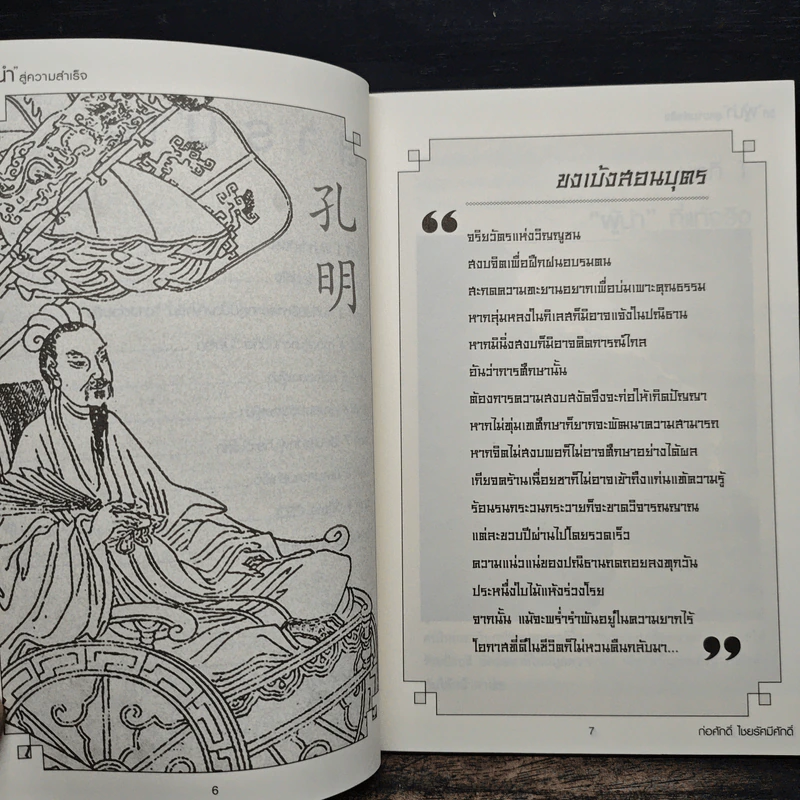 นำ" สู่ความสำเร็จ
孔
明
6
ขงเบ้งสอนบุตร
“
จริยวัตรแห่งวิญญูชน
สงบจิตเพื่อฝึกฝนอบรมตน
สะกดความทะยานอยากเพื่อบ่มเพาะคุณธรรม
หากลุ่มหลงในกิเลสก็มิอาจแจ้งในปณิธาน
หากมินิ่งสงบก็มิอาจคิดการณ์ไกล
อันว่าการศึกษานั้น
ต้องการความสงบสงัดจึงจะก่อให้เกิดปัญญา
หากไม่ทุ่มเทศึกษาก็ยากจะพัฒนาความสามารถ
หากจิตไม่สงบพอก็ไม่อาจศึกษาอย่างได้ผล
เกียจคร้านเนื่อยชาก็ไม่อาจเข้าถึงแก่นแท้ความรู้
ร้อนรนกระวนกระวายก็จะขาดวิจารณญาณ
แต่ละขวบปีผ่านไปโดยรวดเร็ว
ความแน่วแน่ของปณิธานถดถอยลงทุกวัน
ประหนึ่งใบไม้แห้งร่วงโรย
จากนั้น แม้จะพร่ำรำพันอยู่ในความยากไร้
โอกาสที่ดีในชีวิตก็ไม่หวนคืนกลับมา...
”
7
ก่อศักดิ์ ไชยรัศมีศักดิ์